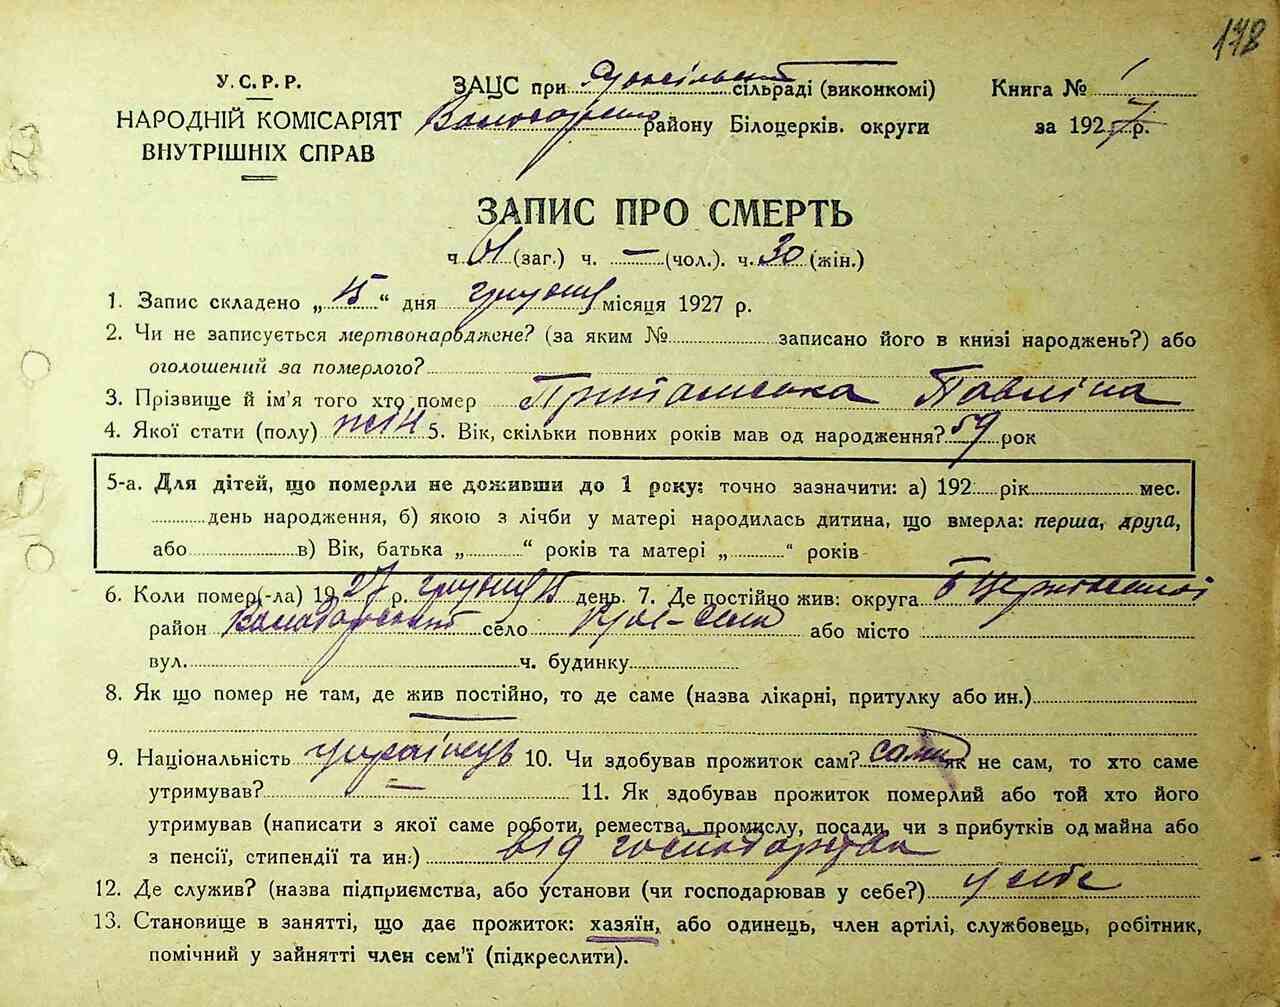 178
У.С.Р.Р.
НАРОДНІЙ КОМІСАРІЯТ
ВНУТРІШНІХ СПРАВ
ЗАЦС при сільраді (виконкомі)
району Білоцерків. округи
Книга № 1
за 1927 р.
ЗАПИС ПРО СМЕРТЬ
ч. 61 (заг.) ч. — (чол.). ч. 30 (жін.)
1. Запис складено „15“ дня грудня місяця 1927 р.
2. Чи не записується мертвонароджене? (за яким № записано його в книзі народжень?) або
оголошений за померлого?
3. Прізвище й ім'я того хто помер Павліна
4. Якої стати (полу) жін 5. Вік, скільки повних років мав од народження? 59 рок
5-а. Для дітей, що померли не доживши до 1 року: точно зазначити: а) 192 рік мес.
день народження, б) якою з лічби у матері народилась дитина, що вмерла: перша, друга,
або в) Вік, батька „ “ років та матері „ “ років
6. Коли помер(-ла) 1927 р. грудня 15 день. 7. Де постійно жив: округа Б Церківської
район Володарський село або місто
вул. ч. будинку
8. Як що помер не там, де жив постійно, то де саме (назва лікарні, притулку або ин.)
—
9. Національність українець 10. Чи здобував прожиток сам? сама як не сам, то хто саме
утримував? — 11. Як здобував прожиток померлий або той хто його
утримував (написати з якої саме роботи, ремества, промислу, посади, чи з прибутків од майна або
з пенсії, стипендії та ин.) від господарства
12. Де служив? (назва підприємства, або установи (чи господарював у себе?) у себе
13. Становище в занятті, що дає прожиток: хазяїн, або одинець, член артілі, службовець, робітник,
помічний у зайнятті член сем'ї (підкреслити).